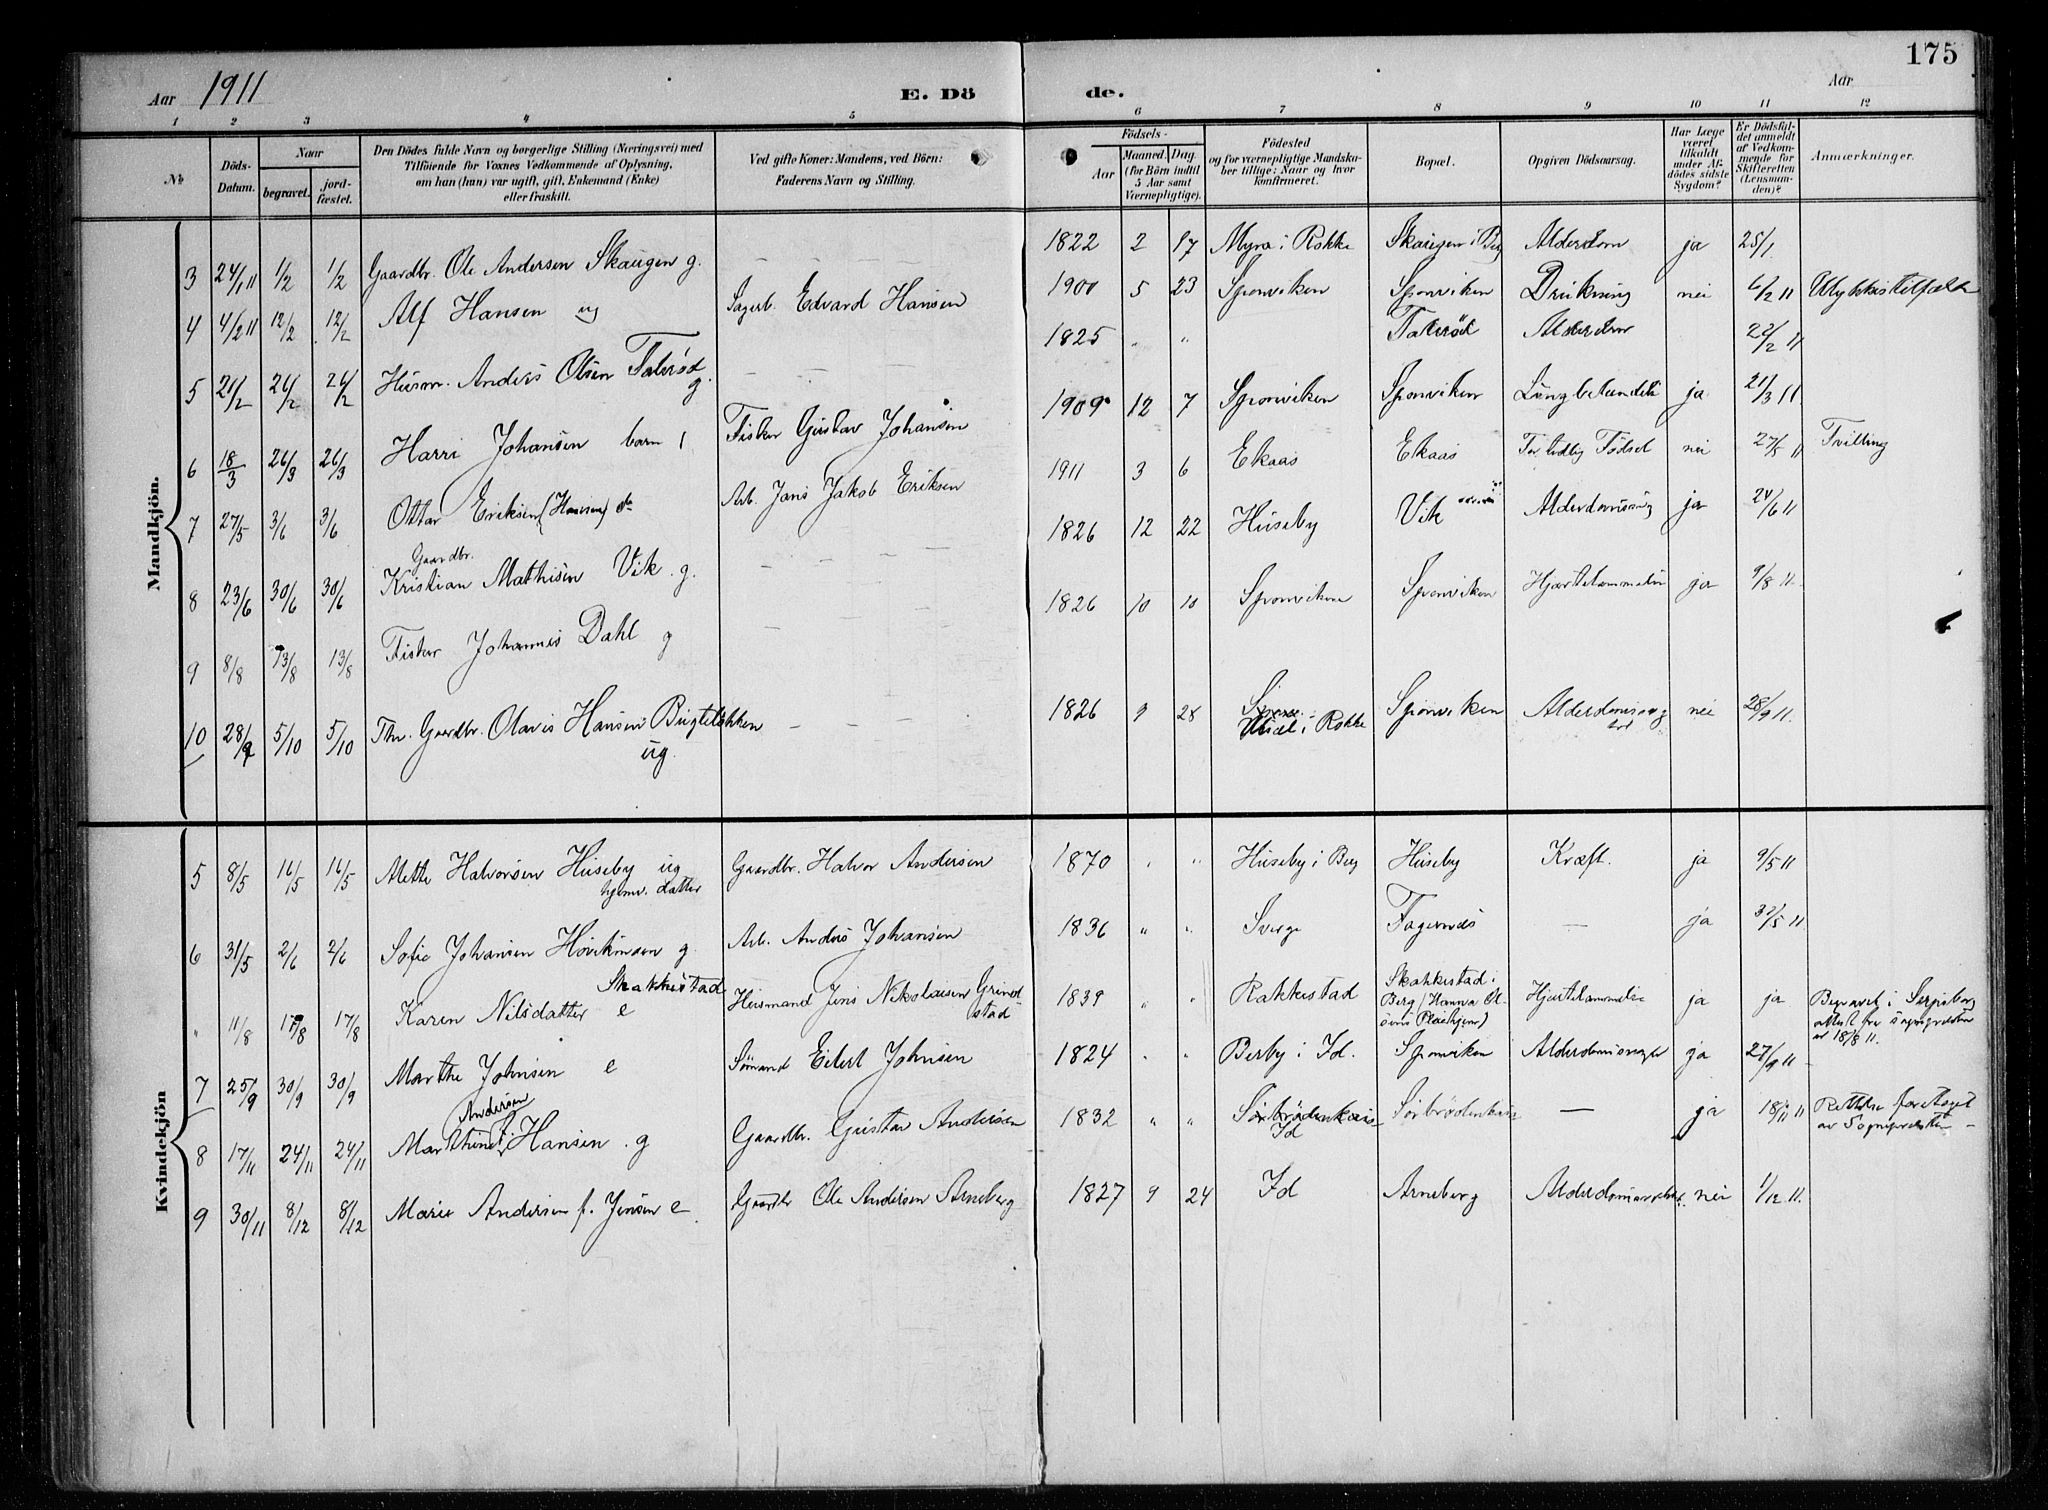 175
Aar 1911
E. Dö
de.
Aar
1 2 3 4 5 6 7 8 9 10 11 12
№
Döds-Datum.
Naar
begravet.
jordfæstet.
Den Dödes fulde Navn og borgerlige Stilling (Næringsvei) med
Tilföiende for Voxnes Vedkommende af Oplysning,
om han (hun) var ugift, gift, Enkemand (Enke)
eller fraskilt.
Ved gifte Koner: Mandens, ved Börn:
Faderens Navn og Stilling.
Födsels-
Aar
Maaned. Dag.
(for Börn indtil
5 Aar samt
Værnepligtige).
Födested
og for værnepligtige Mandskaber
tillige: Naar og hvor
konfirmeret.
Bopæl.
Opgiven Dödsaarsag.
Har Læge
været
tilkaldt
under Afdödes
sidste
Sygdom?
Er Dödsfaldet
anmeldt
af Vedkommende
for
Skifteretten
(Lensmanden)?
Anmærkninger.
Mandkjön.
3 24/1 11 1/2 1/2 Gaardbr. Ole Andersen Skaugen g. 1822 2 17 Myra i Rokke Skaugen i Berg Alderdom ja 25/1
4 4/2 11 12/2 12/2 Alf Hansen ug Sagerb. Edvard Hansen 1900 5 23 Sponviken Sponviken Drukning nei 6/2 11 Ulykkestilfælde
5 21/2 26/2 26/2 Husm. Anders Olsen g. 1825 " " Alderdom 22/2 11
6 18/3 26/3 26/3 Harri Johansen barn Fisker Gustav Johansen 1909 12 7 Sponviken Sponviken ja 21/3 11
7 27/5 3/6 3/6 Ottar Eriksen (Hansen) do Arb. Jens Jakob Eriksen 1911 3 6 Ekaas Ekaas For tidlig Födsel nei 27/5 11 Tvilling
8 23/6 30/6 30/6 Gaardbr. Kristian Mathisen Vik g. 1826 12 22 Huseby Vik ja 24/6 11
9 8/8 13/8 13/8 Fisker Johannes Dahl g 1826 10 10 Sponviken Sponviken Hjertelammelse ja 9/8 11.
10 28/9 5/10 5/10 Fhv. Gaardbr. Olaves Hansen ug. 1826 9 28 i Rokke Sponviken nei 28/9 11.
Kvindekjön
5 8/5 16/5 16/5 Mette Halvorsen Huseby ug hjemv. datter Gaardbr. Halvor Andersen 1870 " " Huseby i Berg Huseby Kræft. ja 9/5 11
6 31/5 2/6 2/6 Sofie Johansen g Arb. Anders Johansen 1836 " " Sverge Fagernes — ja 11
" 11/8 17/8 17/8 Karen Nilsdatter Skakkestad e Husmand Jens Nikolaisen Grindstad 1839 " " Rakkestad Skakkestad i Berg (Hanna Olsens Pleiehjem) Hjertelammelse ja ja Begravet i Sarpsborg attest fra sogneprästen av 18/8 11.
7 25/9 30/9 30/9 Marthe Johnsen e Sömand Eilert Johnsen 1824 " " Berby i Id. Sponviken ja 27/9 11
8 17/11 24/11 24/11 Andersen Hansen. g Gaardbr. Gustav Andersen 1832 " " Id — ja 18/11 11 Rettelse foretaget av Sogneprästen
9 30/11 8/12 8/12 Marie Andersen f. Jensen e Gaardbr Ole Andersen Arneberg 1827 9 24 Id Arneberg nei 1/12 11.